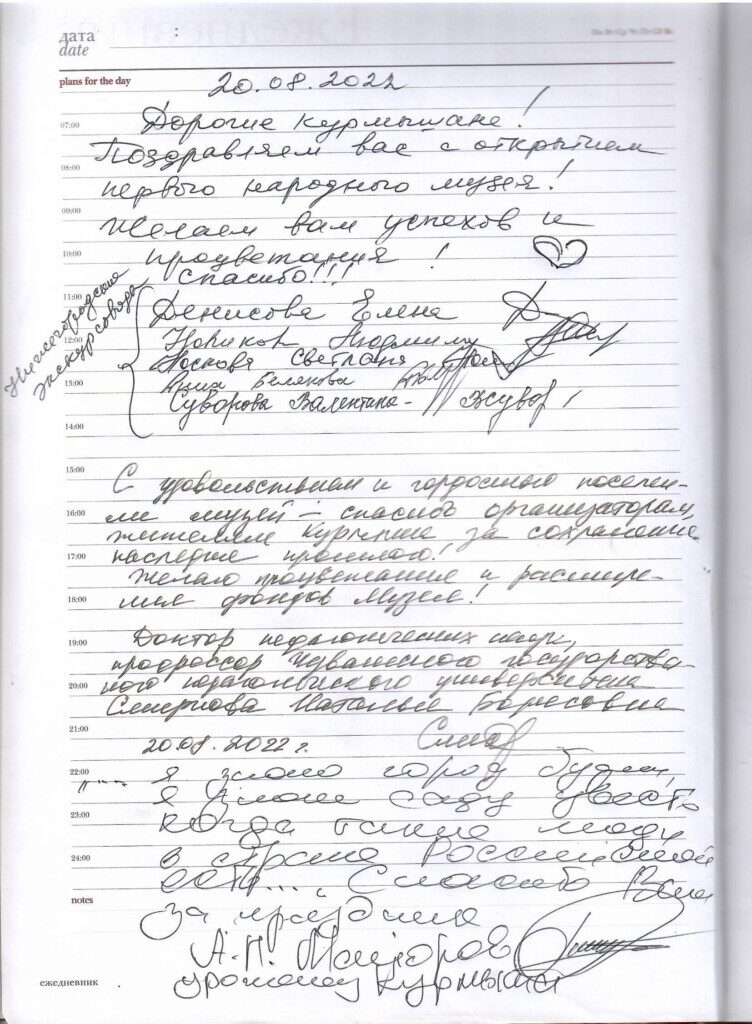 дата
date
plans for the day
20.08.2022
07:00
Дорогие курмышане!
Поздравляем вас с открытием
08:00
первого народного музея!
09:00
Желаем вам успехов и
10:00
процветания!
спасибо!!!
Нижегородские
экскурсоводы
11:00
Денисова Елена
12:00
Людмила
Носкова Светлана
13:00
Суворова Валентина -
14:00
15:00
С удовольствием и гордостью посети-
16:00
ли музей - спасибо организаторам,
жителям Курмыша за сохранение
17:00
наследия прошлого!
Желаю процветания и расшире-
18:00
ния фондов музея!
19:00
Доктор педагогических наук,
профессор Чувашского государствен-
20:00
ного педагогического университета
Смирнова Наталья Борисовна
21:00
20.08.2022 г.
22:00
"... я знаю город будет,
я знаю саду цвесть
23:00
когда такие люди
24:00
в стране Российской
есть.... Спасибо Вам
notes
за праздник
А.П. Майоров
уроженец Курмыша
ежедневник